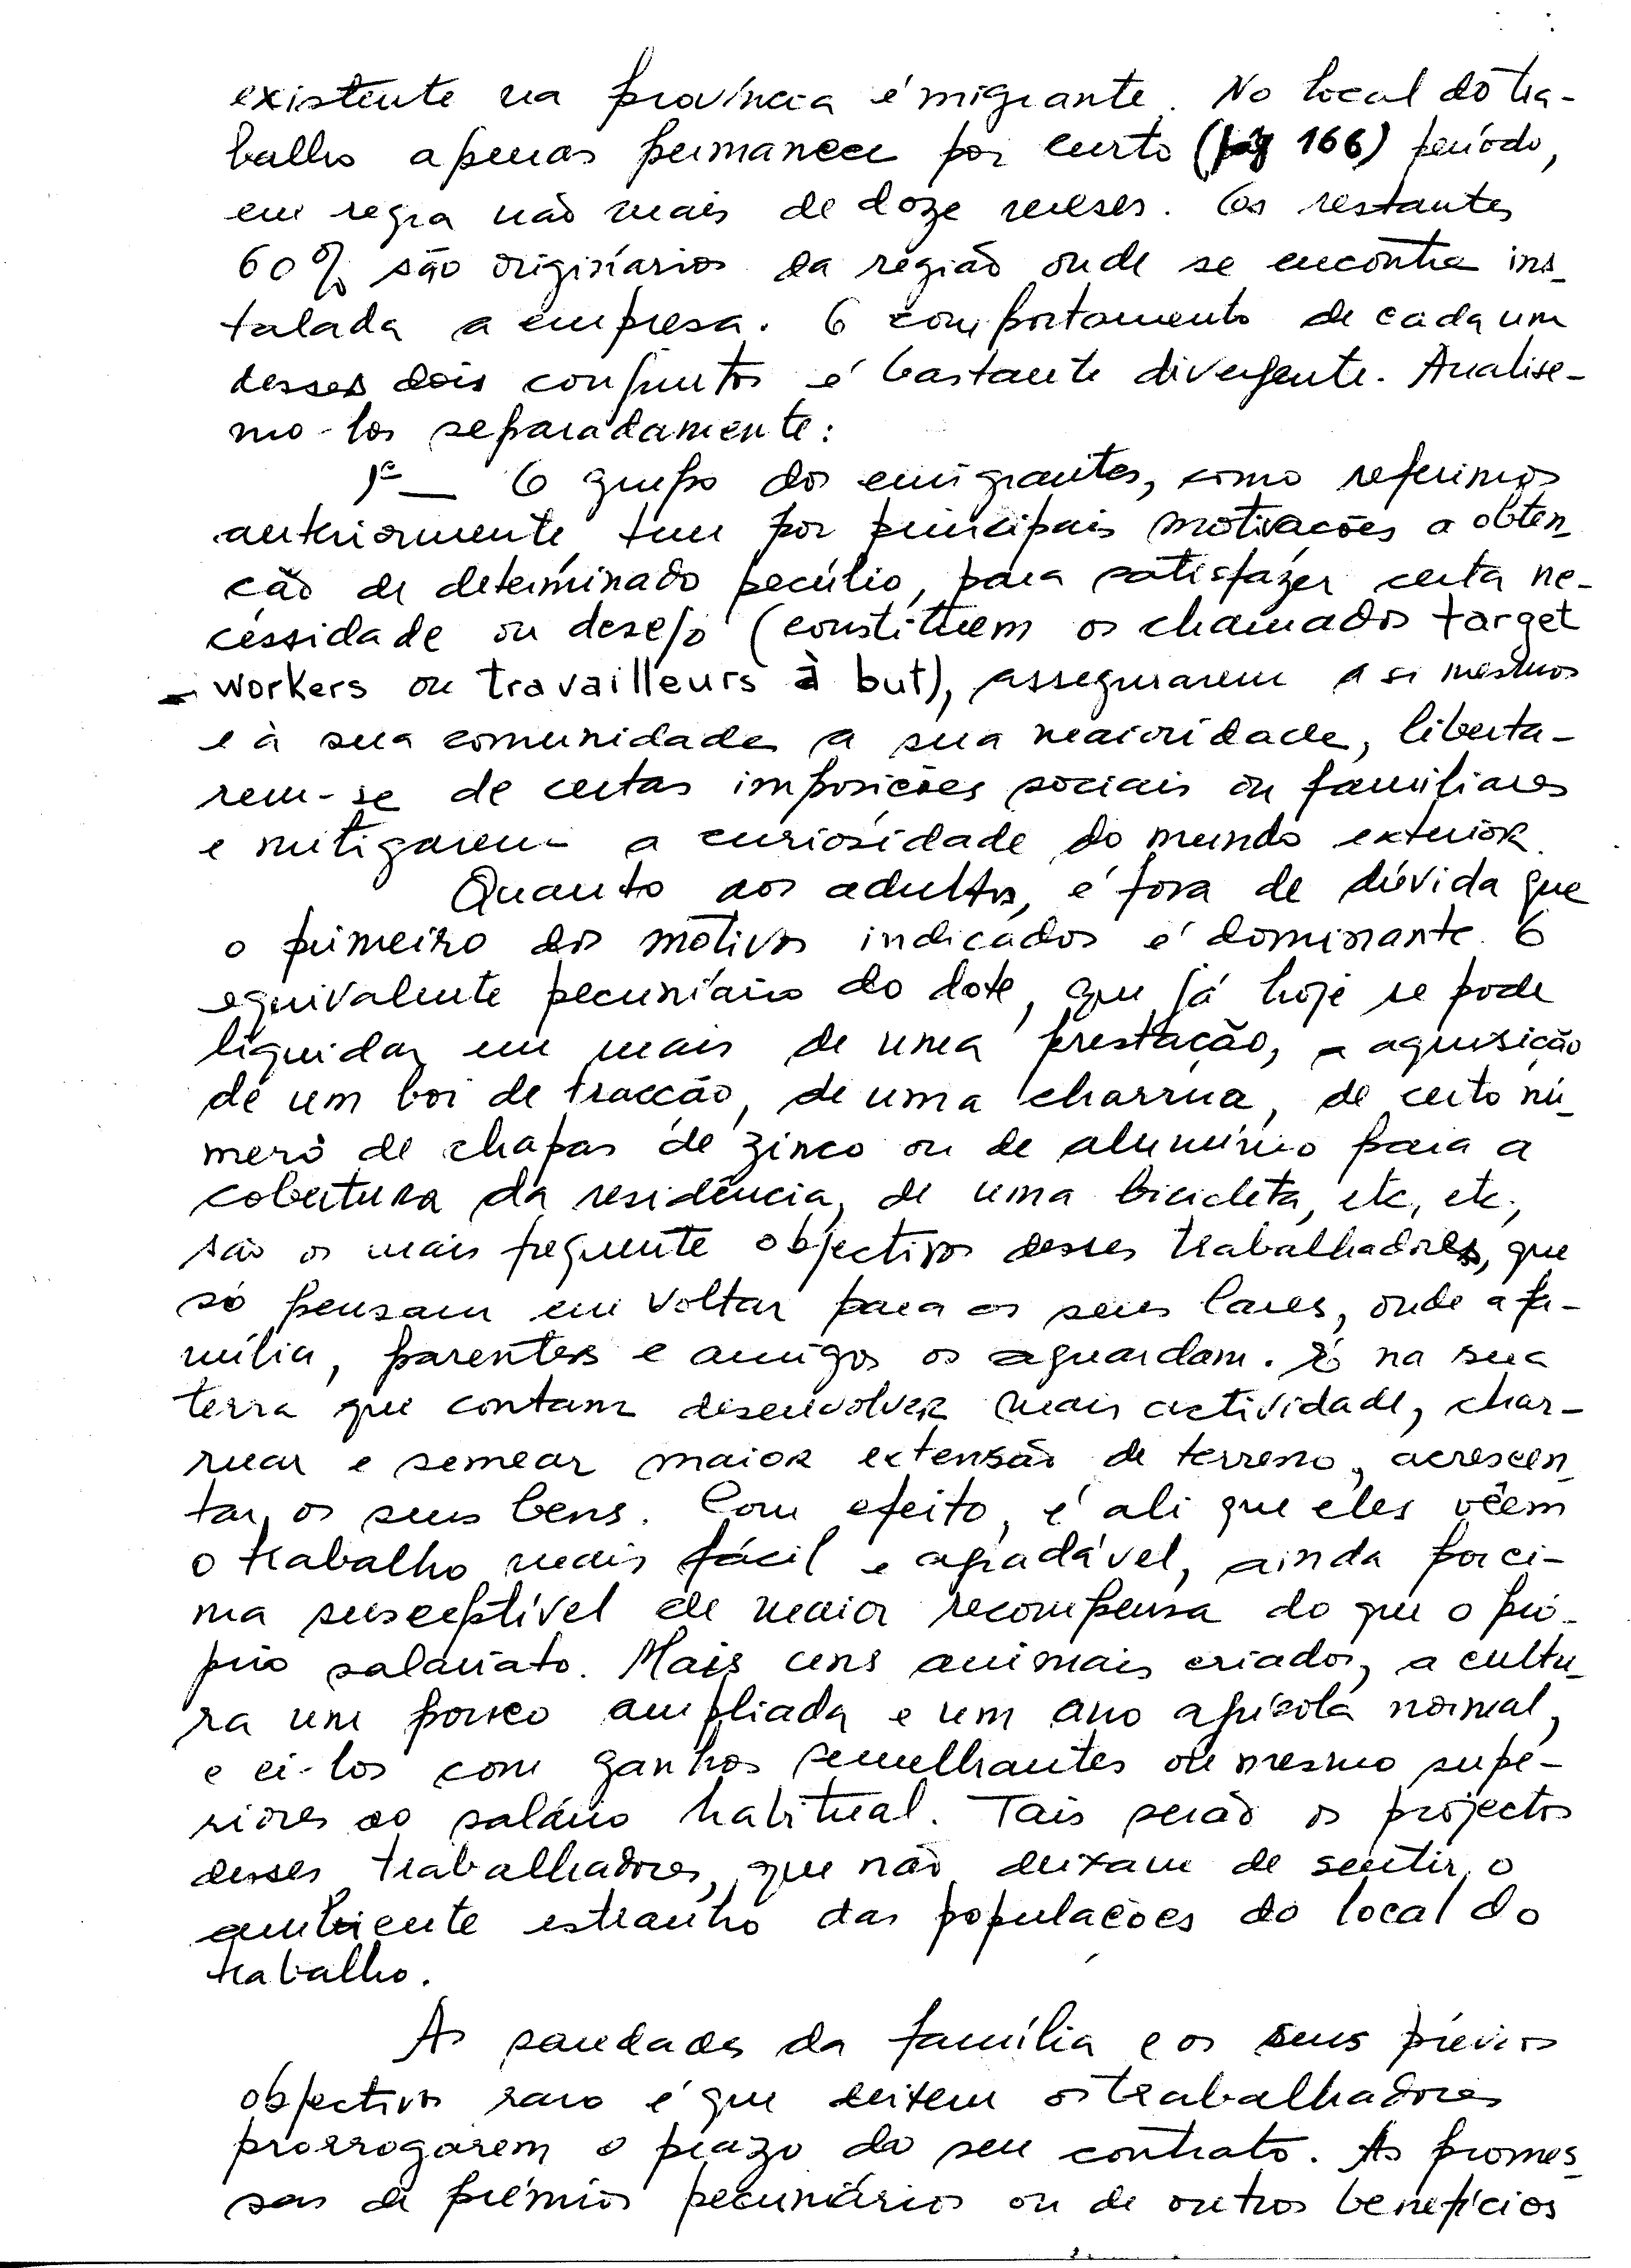 existente na província é migrante. No local do tra-
balho apenas permanece por curto (pág 166) período,
em regra não mais de doze meses. Os restantes
60% são originários da região onde se encontra ins-
talada a empresa. O comportamento de cada um
desses dois conjuntos é bastante divergente. Analise-
mo-los separadamente:
1º — O grupo dos emigrantes, como referimos
anteriormente, tem por principais motivações a obten-
ção de determinado pecúlio, para satisfazer certa ne-
cessidade ou desejo (constituem os chamados target
- workers ou travailleurs à but), assegurarem a si mesmos
e à sua comunidade a sua maioridade, liberta-
rem-se de certas imposições sociais ou familiares
e mitigarem a curiosidade do mundo exterior.
Quanto aos adultos, é fora de dúvida que
o primeiro dos motivos indicados é dominante. O
equivalente pecuniário do dote, que já hoje se pode
liquidar em mais de uma prestação, a aquisição
de um boi de tracção, de uma charrua, de certo nú-
mero de chapas de zinco ou de alumínio para a
cobertura da residência, de uma bicicleta, etc, etc,
são os mais frequente objectivos desses trabalhadores, que
só pensam em voltar para os seus lares, onde a fa-
mília, parentes e amigos os aguardam. É na sua
terra que contam desenvolver mais actividade, char-
ruar e semear maior extensão de terreno, acrescen-
tar os seus bens. Com efeito, é ali que eles vêem
o trabalho mais fácil e agradável, ainda por ci-
ma susceptível de maior recompensa do que o pró-
prio salariato. Mais uns animais criados, a cultu-
ra um pouco ampliada e um ano agrícola normal,
e ei-los com ganhos semelhantes ou mesmo supe-
riores ao salário habitual. Tais serão os projectos
desses trabalhadores, que não deixam de sentir o
ambiente estranho das populações do local do
trabalho.
As saudades da família e os seus prévios
objectivos raro é que deixem os trabalhadores
prorrogarem o prazo do seu contrato. As promes-
sas de prémios pecuniários ou de outros benefícios